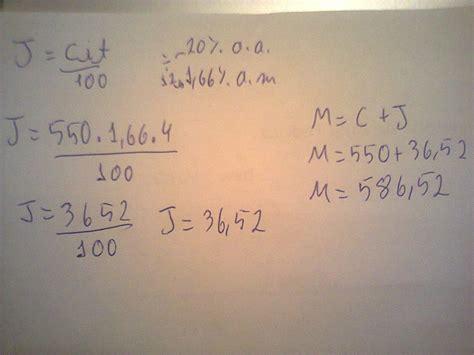 J = cit
100
÷ 20% a.a.
12 1,66% a.m
J = 550.1,66.4
100
J = 3652
100
J = 36,52
M = C + J
M = 550 + 36,52
M = 586,52